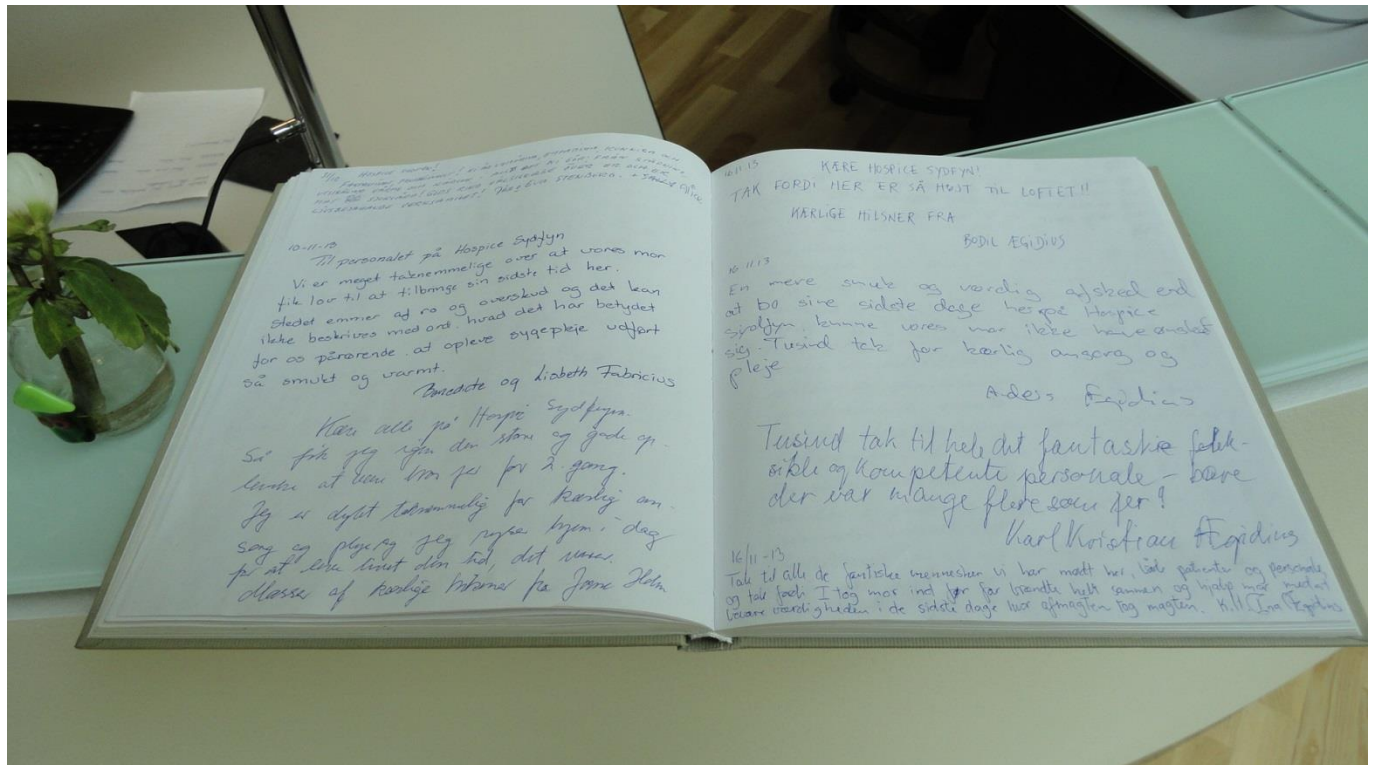 HOSPICE
10-11-13
Til personalet på Hospice Sydfyn
Vi er meget taknemmelige over at vores mor
fik lov til at tilbringe sin sidste tid her.
Stedet emmer af ro og overskud og det kan
ikke beskrives med ord, hvad det har betydet
for os pårørende, at opleve sygepleje udført
så smukt og varmt.
og Lisbeth Fabricius
Kære alle på Hospice Sydfyn.
Så fik jeg igen den store og gode op-
levelse at være hos jer for 2. gang.
Jeg er dybt taknemmelig for kærlig om-
sorg og pleje og jeg rejser hjem i dag
for at leve livet den tid, det varer.
Masser af kærlige hilsner fra Holm
16.11.13
KÆRE HOSPICE SYDFYN!
TAK FORDI HER ER SÅ HØJT TIL LOFTET!!
KÆRLIGE HILSNER FRA
BODIL ÆGIDIUS
16.11.13
En mere smuk og værdig afsked end
at bo sine sidste dage her på Hospice
Sydfyn, kunne vores mor ikke have ønsket
sig. Tusind tak for kærlig omsorg og
pleje
Ægidius
Tusind tak til hele det fantastiske
og kompetente personale – bare
der var mange flere som jer!
Karl Kristian Ægidius
16/11-13
Tak til alle de mennesker vi har mødt her, både patienter og personale,
og tak fordi I tog mor ind før før brændte helt sammen og hjalp mor med at
bevare værdigheden i de sidste dage hvor afmagten tog magten. Ægidius